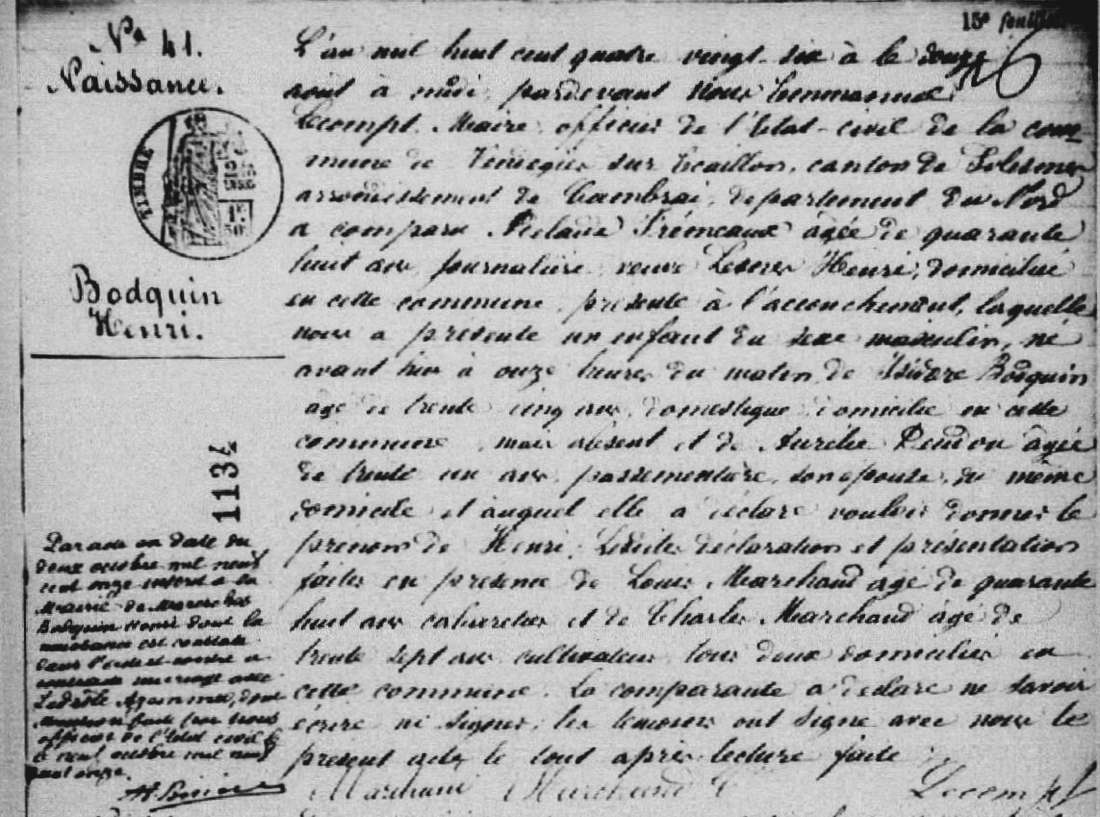 15e feuillet
N° 41.
Naissance.
TIMBRE
Bodquin
Henri.
1134
L'an mil huit cent quatre vingt-six à le douze
août à midi, pardevant Nous Emmanuel
Lecompt, Maire, officier de l'Etat-civil de la com-
mune de Vendegies sur Ecaillon, canton de Solesmes
arrondissement de Cambrai, département du Nord
a comparu agée de quarante
huit ans, journalière, veuve Henri, domiciliée
en cette commune, présente à l'accouchement, laquelle
nous a présenté un enfant du sexe masculin, né
avant hier à onze heures du matin, de Isidore Bodquin
agé de trente cinq ans, domestique domicilié en cette
commune, mais absent et de Aurélie agée
de trente un ans, passementière, son épouse, du même
domicile et auquel elle a déclaré vouloir donner le
prénom de Henri. Lesdites déclaration et présentation
faites en présence de Louis Marchand agé de quarante
huit ans cabaretier et de Charles Marchand agé de
trente sept ans cultivateur tous deux domiciliés en
cette commune. La comparante a déclaré ne savoir
écrire ni signer, les témoins ont signé avec nous le
présent acte le tout après lecture faite
Marchand Marchand C Lecompt
Par acte en date du
deux octobre mil neuf
cent onze inscrit à la
Mairie de
Bodquin Henri dont la
naissance est constatée
dans l'acte ci-contre a
contracté mariage avec
Ledrôle dont
mention faite par nous
officier de l'Etat civil le
neuf octobre mil neuf
cent onze.